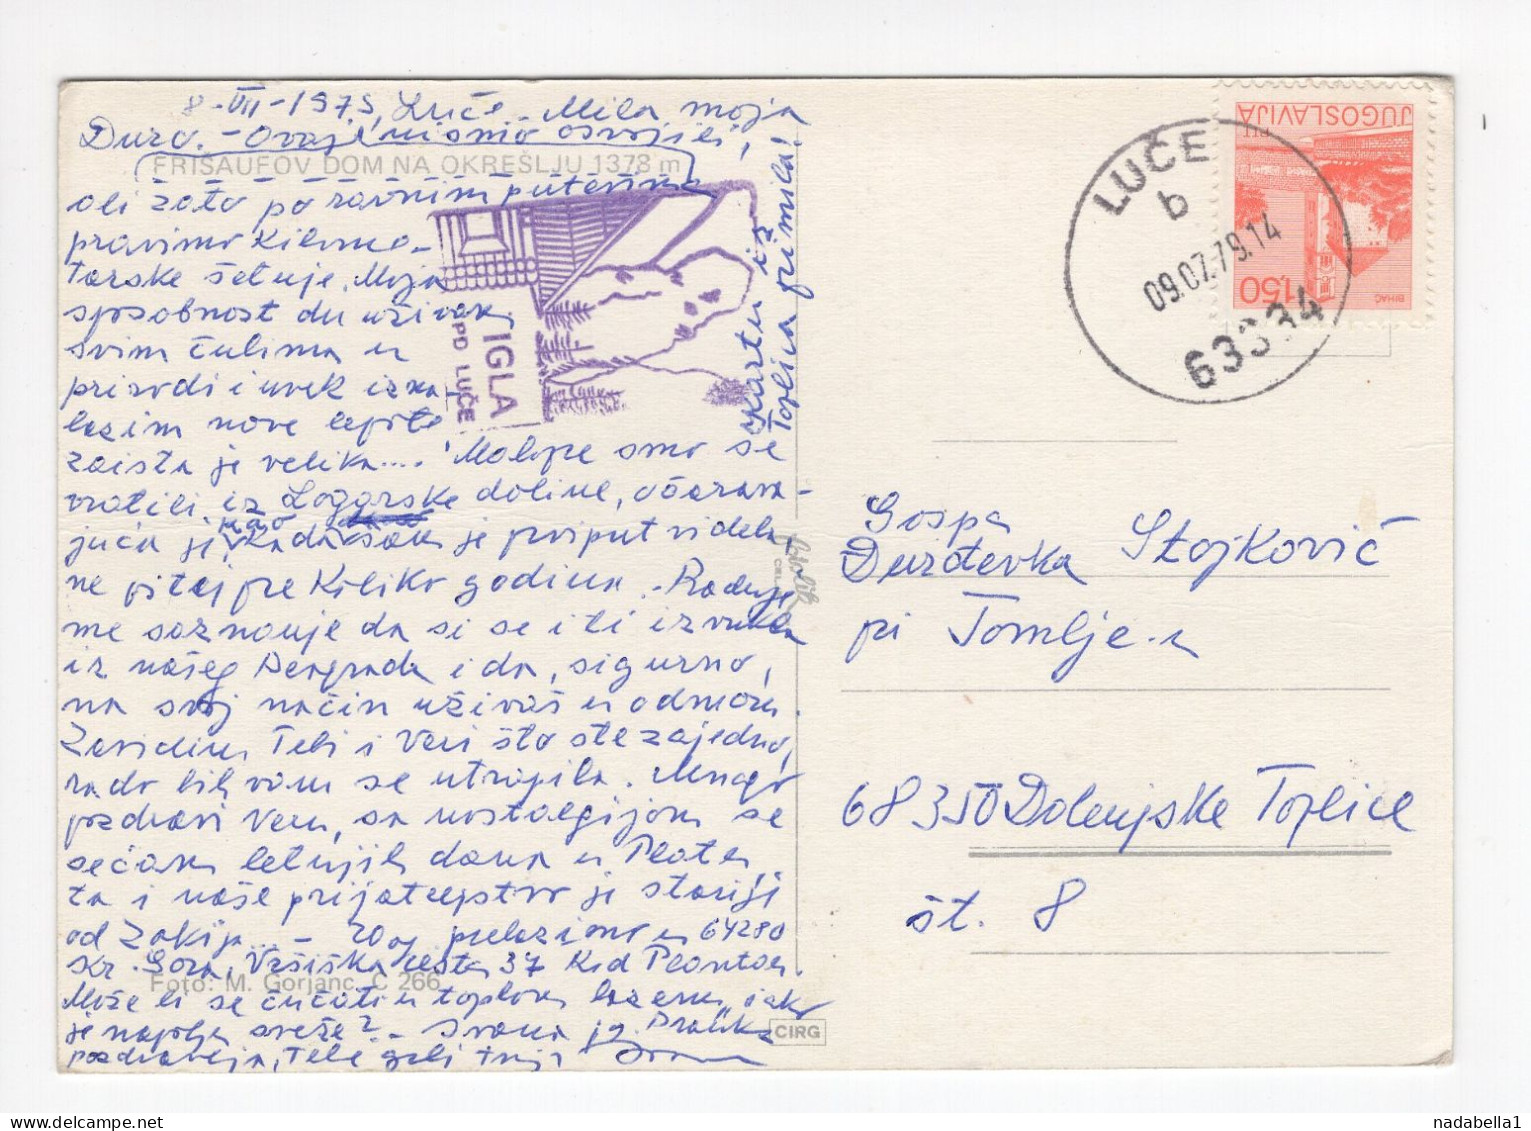 8-VII-1979, Luče - Mila moja
Đuro. - Ovaj nismo osvojili,
FRIŠAUFOV DOM NA OKREŠLJU 1378 m
ali zato po ravnim putevima
pravimo kilome-
tarske šetnje. Moja
sposobnost da uživam
svim čulima u
prirodi i uvek izna
lazim nove lepote
zaista je velika.... Malopre smo se
vratili iz Logarske doline, očarava-
juća je, kao kada sam je prvi put videla,
ne pitaj pre koliko godina. - Raduje
me saznanje da si se i ti izvukla
iz našeg Beograda i da, sigurno,
na svoj način uživaš u odmoru.
Zavidim Tebi i Veri što ste zajedno,
rado bih vam se utrojila. Mnogo
pozdravi Veru, sa nostalgijom se
sećam letnjih dana u
ta i naše prijateljstvo je starije
od Zakija... - 20og prelazimo u 64280
Kr. Gora, Vršiška cesta 37 kod
Foto: M. Gorjanc, C 266
Može li se čučati u toplom bazenu, iako
je napolju sveže? -
pozdravlja, Tebe grli tvoja
Kartu iz
Toplica primila!
IGLA
PD LUČE
CIRG
LUČE
b
09.07.79.14
63334
JUGOSLAVIJA
PTT
1,50
BIHAĆ
Gospa
Đurđevka Stojković
pri Tomlje-u
68350 Dolenjske Toplice
št. 8
nadabella1